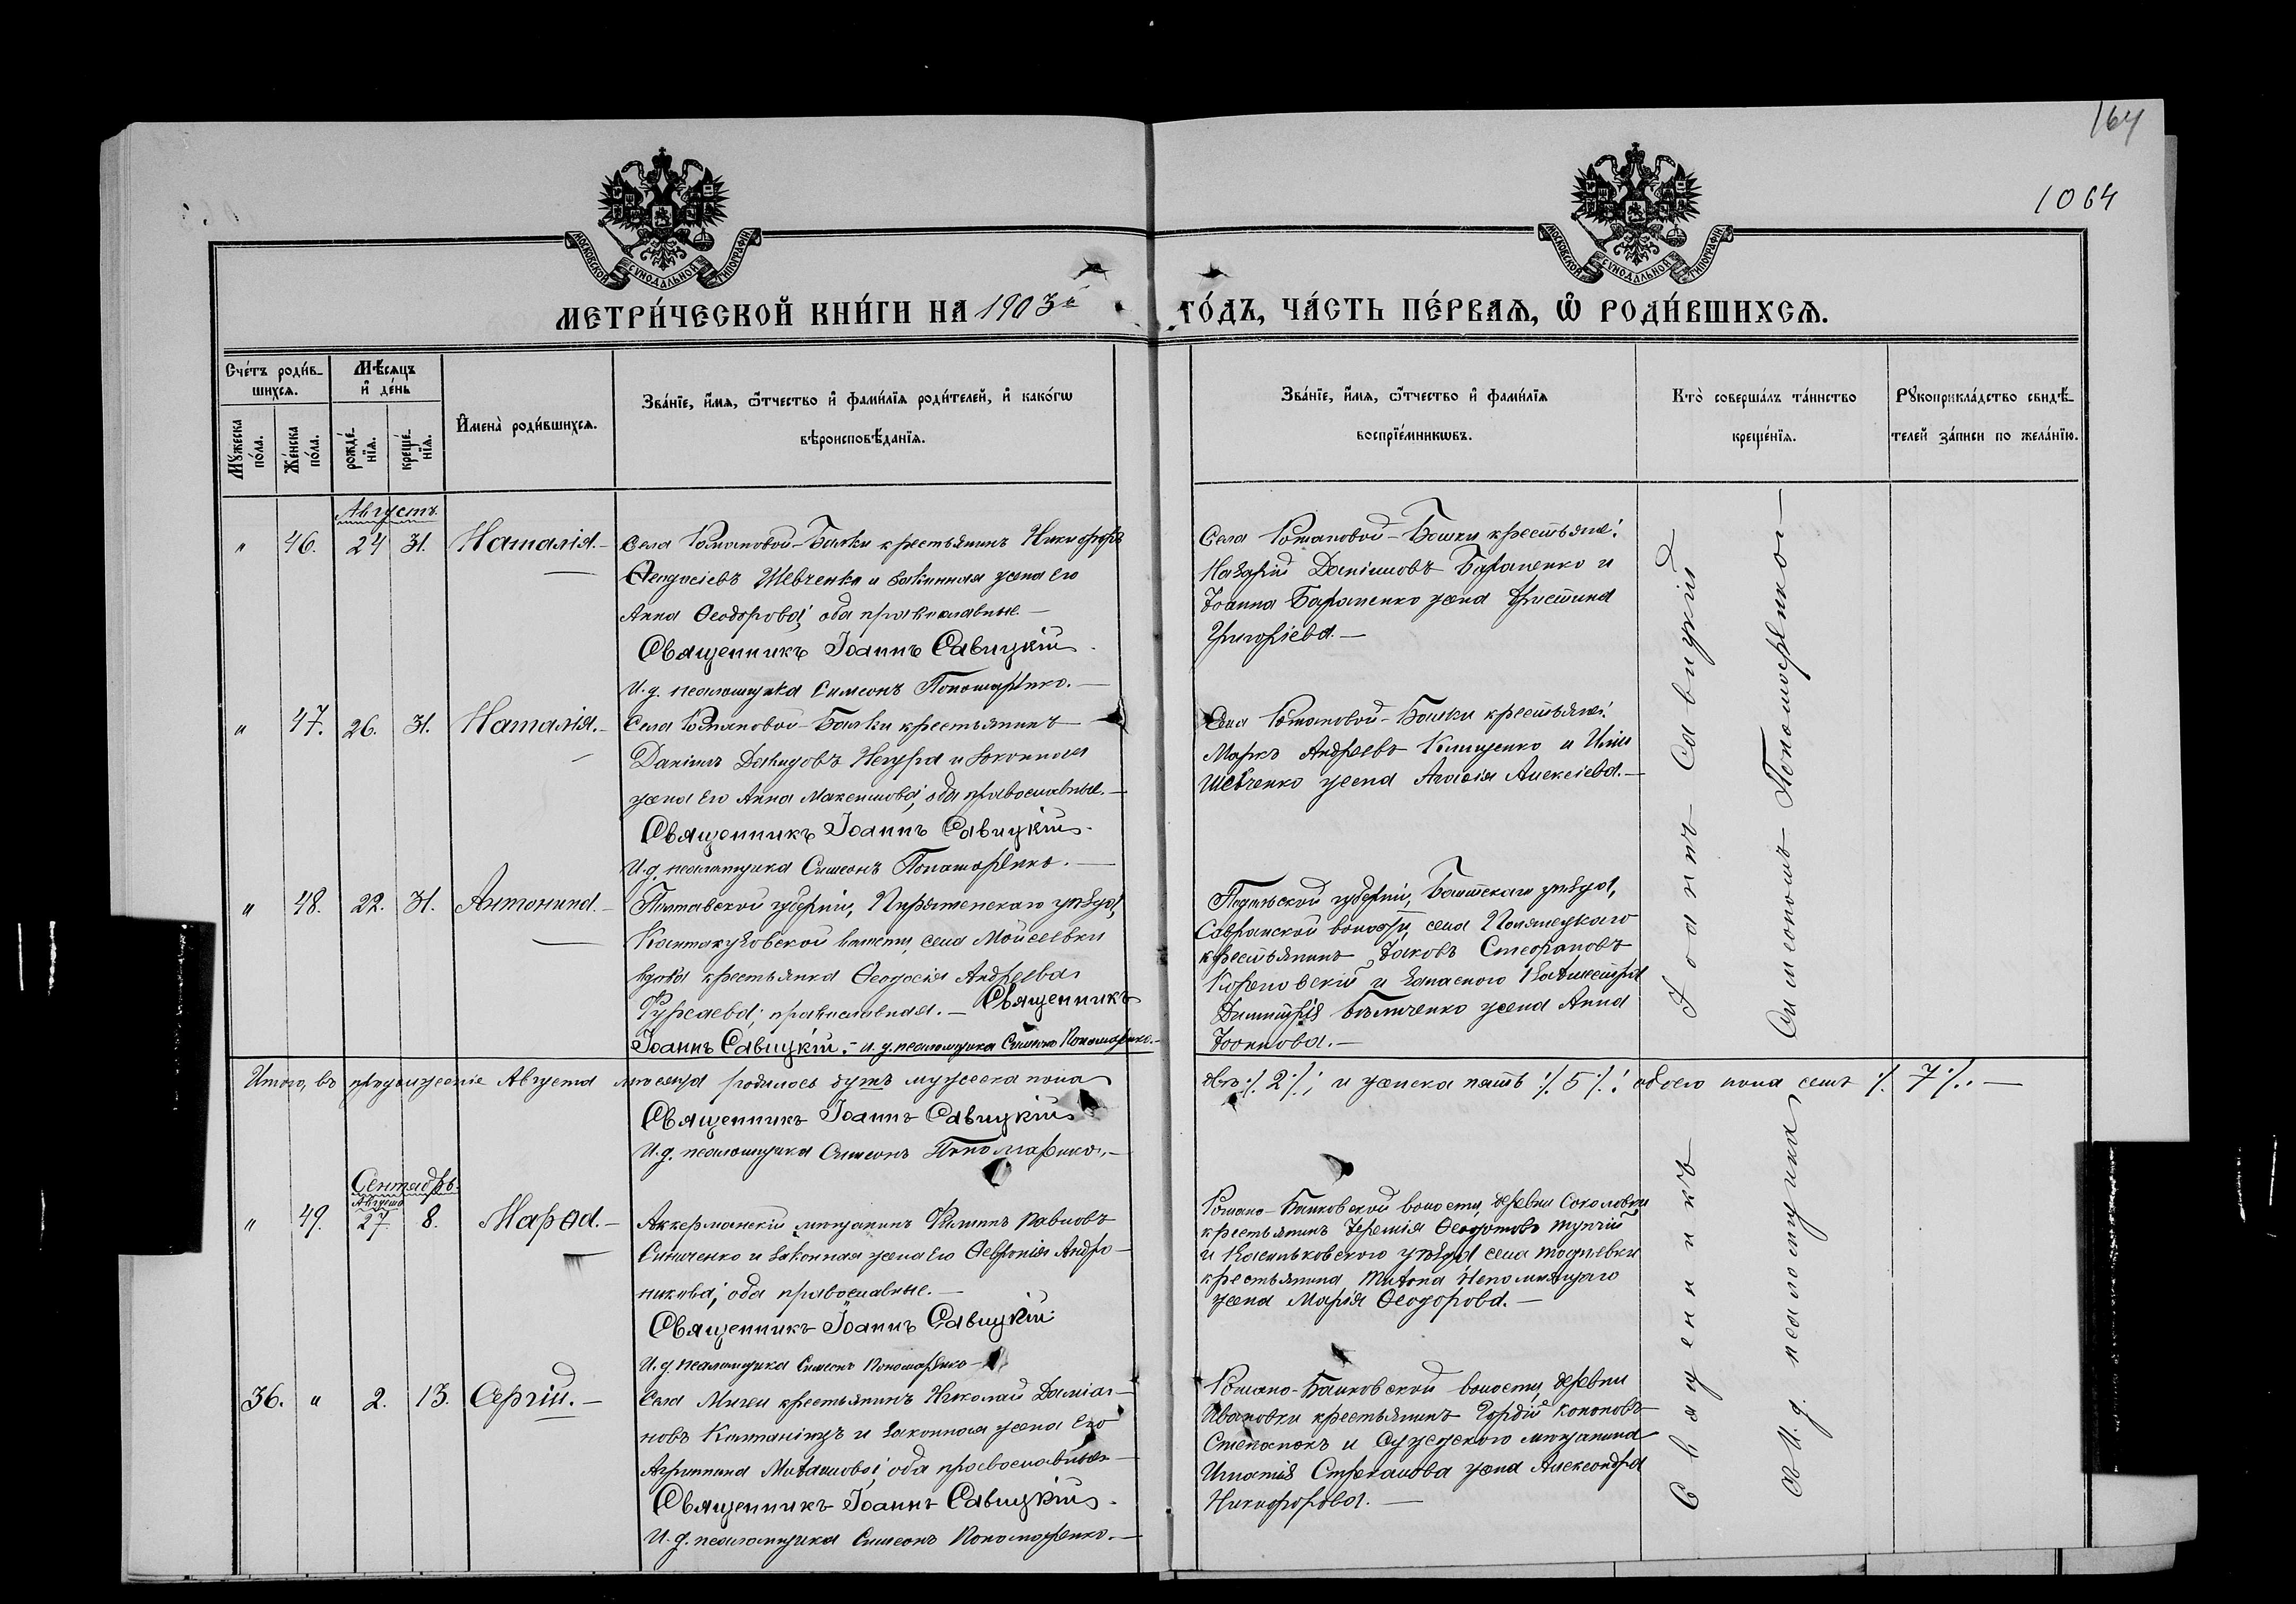 164
1064
МОСКОВСКОЙ СУНОДАЛЬНОЙ ТИПОГРАФІИ
МОСКОВСКОЙ СУНОДАЛЬНОЙ ТИПОГРАФІИ
МЕТРИ́ЧЕСКОЙ КНИ́ГИ НА 1903й го́дъ, ча́сть пе́рваѧ, ѽ роди́вшихсѧ.
Сче́тъ роди́в-
шихсѧ.
Мѣ́сѧцъ
и҆ де́нь
Мꙋ́жеска
по́ла.
Же́нска
по́ла.
рожде́-
нїѧ.
креще́-
нїѧ.
И҆мена̀ роди́вшихсѧ.
Зва́нїе, и҆́мѧ, ѻ҆́тчество и҆ фами́лїѧ роди́телей, и҆ како́гѡ
вѣроисповѣ́данїѧ.
Зва́нїе, и҆́мѧ, ѻ҆́тчество и҆ фами́лїѧ
воспрїе́мникѡвъ.
Кто̀ соверша́лъ та́инство
креще́нїѧ.
Рꙋкоприкла́дство свидѣ́-
телей за́писи по жела́нїю.
Августъ.
" 46. 24 31. Наталія.—
Села Романовой-Балки крестьянинъ Никифоръ
Ѳеодосіевъ Шевченко и законная жена его
Анна Ѳеодорова, оба православные.—
Священникъ Іоаннъ Савицкій.
И. д. псаломщика Симеонъ Пономаренко.—
Села Романовой-Балки крестьяне:
Назарій Даніиловъ Бараненко и
Іоанна Бараненко жена Христина
Григоріева.—
" 47. 26. 31. Наталія.—
Села Романовой-Балки крестьянинъ
Даніилъ Давидовъ и законная
жена его Анна Максимова, оба православные.—
Священникъ Іоаннъ Савицкій.
И. д. псаломщика Симеонъ Пономаренко.—
Села Романовой-Балки крестьяне:
Маркъ Андреевъ Клищенко и Иліи
Шевченко жена Агафія Алексіева.—
" 48. 22. 31. Антонина.—
Полтавской губерніи, Пирятенскаго уѣзда,
Кантакузовской волости, села Мойсеевки
вдова крестьянка Ѳеодосія Андреева
православная.— Священникъ
Іоаннъ Савицкій.— и. д. псаломщика Симеонъ Пономаренко.—
Подольской губерніи, Балтскаго уѣзда,
Савранской волости, села
крестьянинъ Іаковъ Стефановъ
и запаснаго
Димитрія жена Анна
Іоаннова.—
Итого, въ продолженіе Августа мѣсяца родилось мужеска пола
два ·/. 2 ·/.; и женска пять ·/. 5 ·/.; обоего пола семь ·/. 7 ·/.—
Священникъ Іоаннъ Савицкій.
И. д. псаломщика Симеонъ Пономаренко.—
Сентябрь.
Августа
" 49. 27. 8. Марѳа.—
Аккерманскій мѣщанинъ Филиппъ Павловъ
и законная жена его Ѳевронія Андро-
никова, оба православные.—
Священникъ Іоаннъ Савицкій
И. д. псаломщика Симеонъ Пономаренко—
Романо-Балковской волости, деревни Соколовки
крестьянинъ Іеремія Ѳеодотовъ
и Васильковского уѣзда села
крестьянина Митона Непомнящаго
жена Марія Ѳеодорова.—
36. " 2. 13. Сергій.—
Села Мигеи крестьянинъ Николай Даміа-
новъ и законная жена его
Агриппина Михаилова, оба православные—
Священникъ Іоаннъ Савицкій.
И. д. псаломщика Симеонъ Пономаренко.—
Романо-Балковской волости, деревни
Ивановки крестьянинъ Гордій Кононовъ
и мѣщанина
Игнатія жена Александра
Никифорова.—
Священникъ Іоаннъ Савицкій
И. д. псаломщика Симеономъ Пономаренко